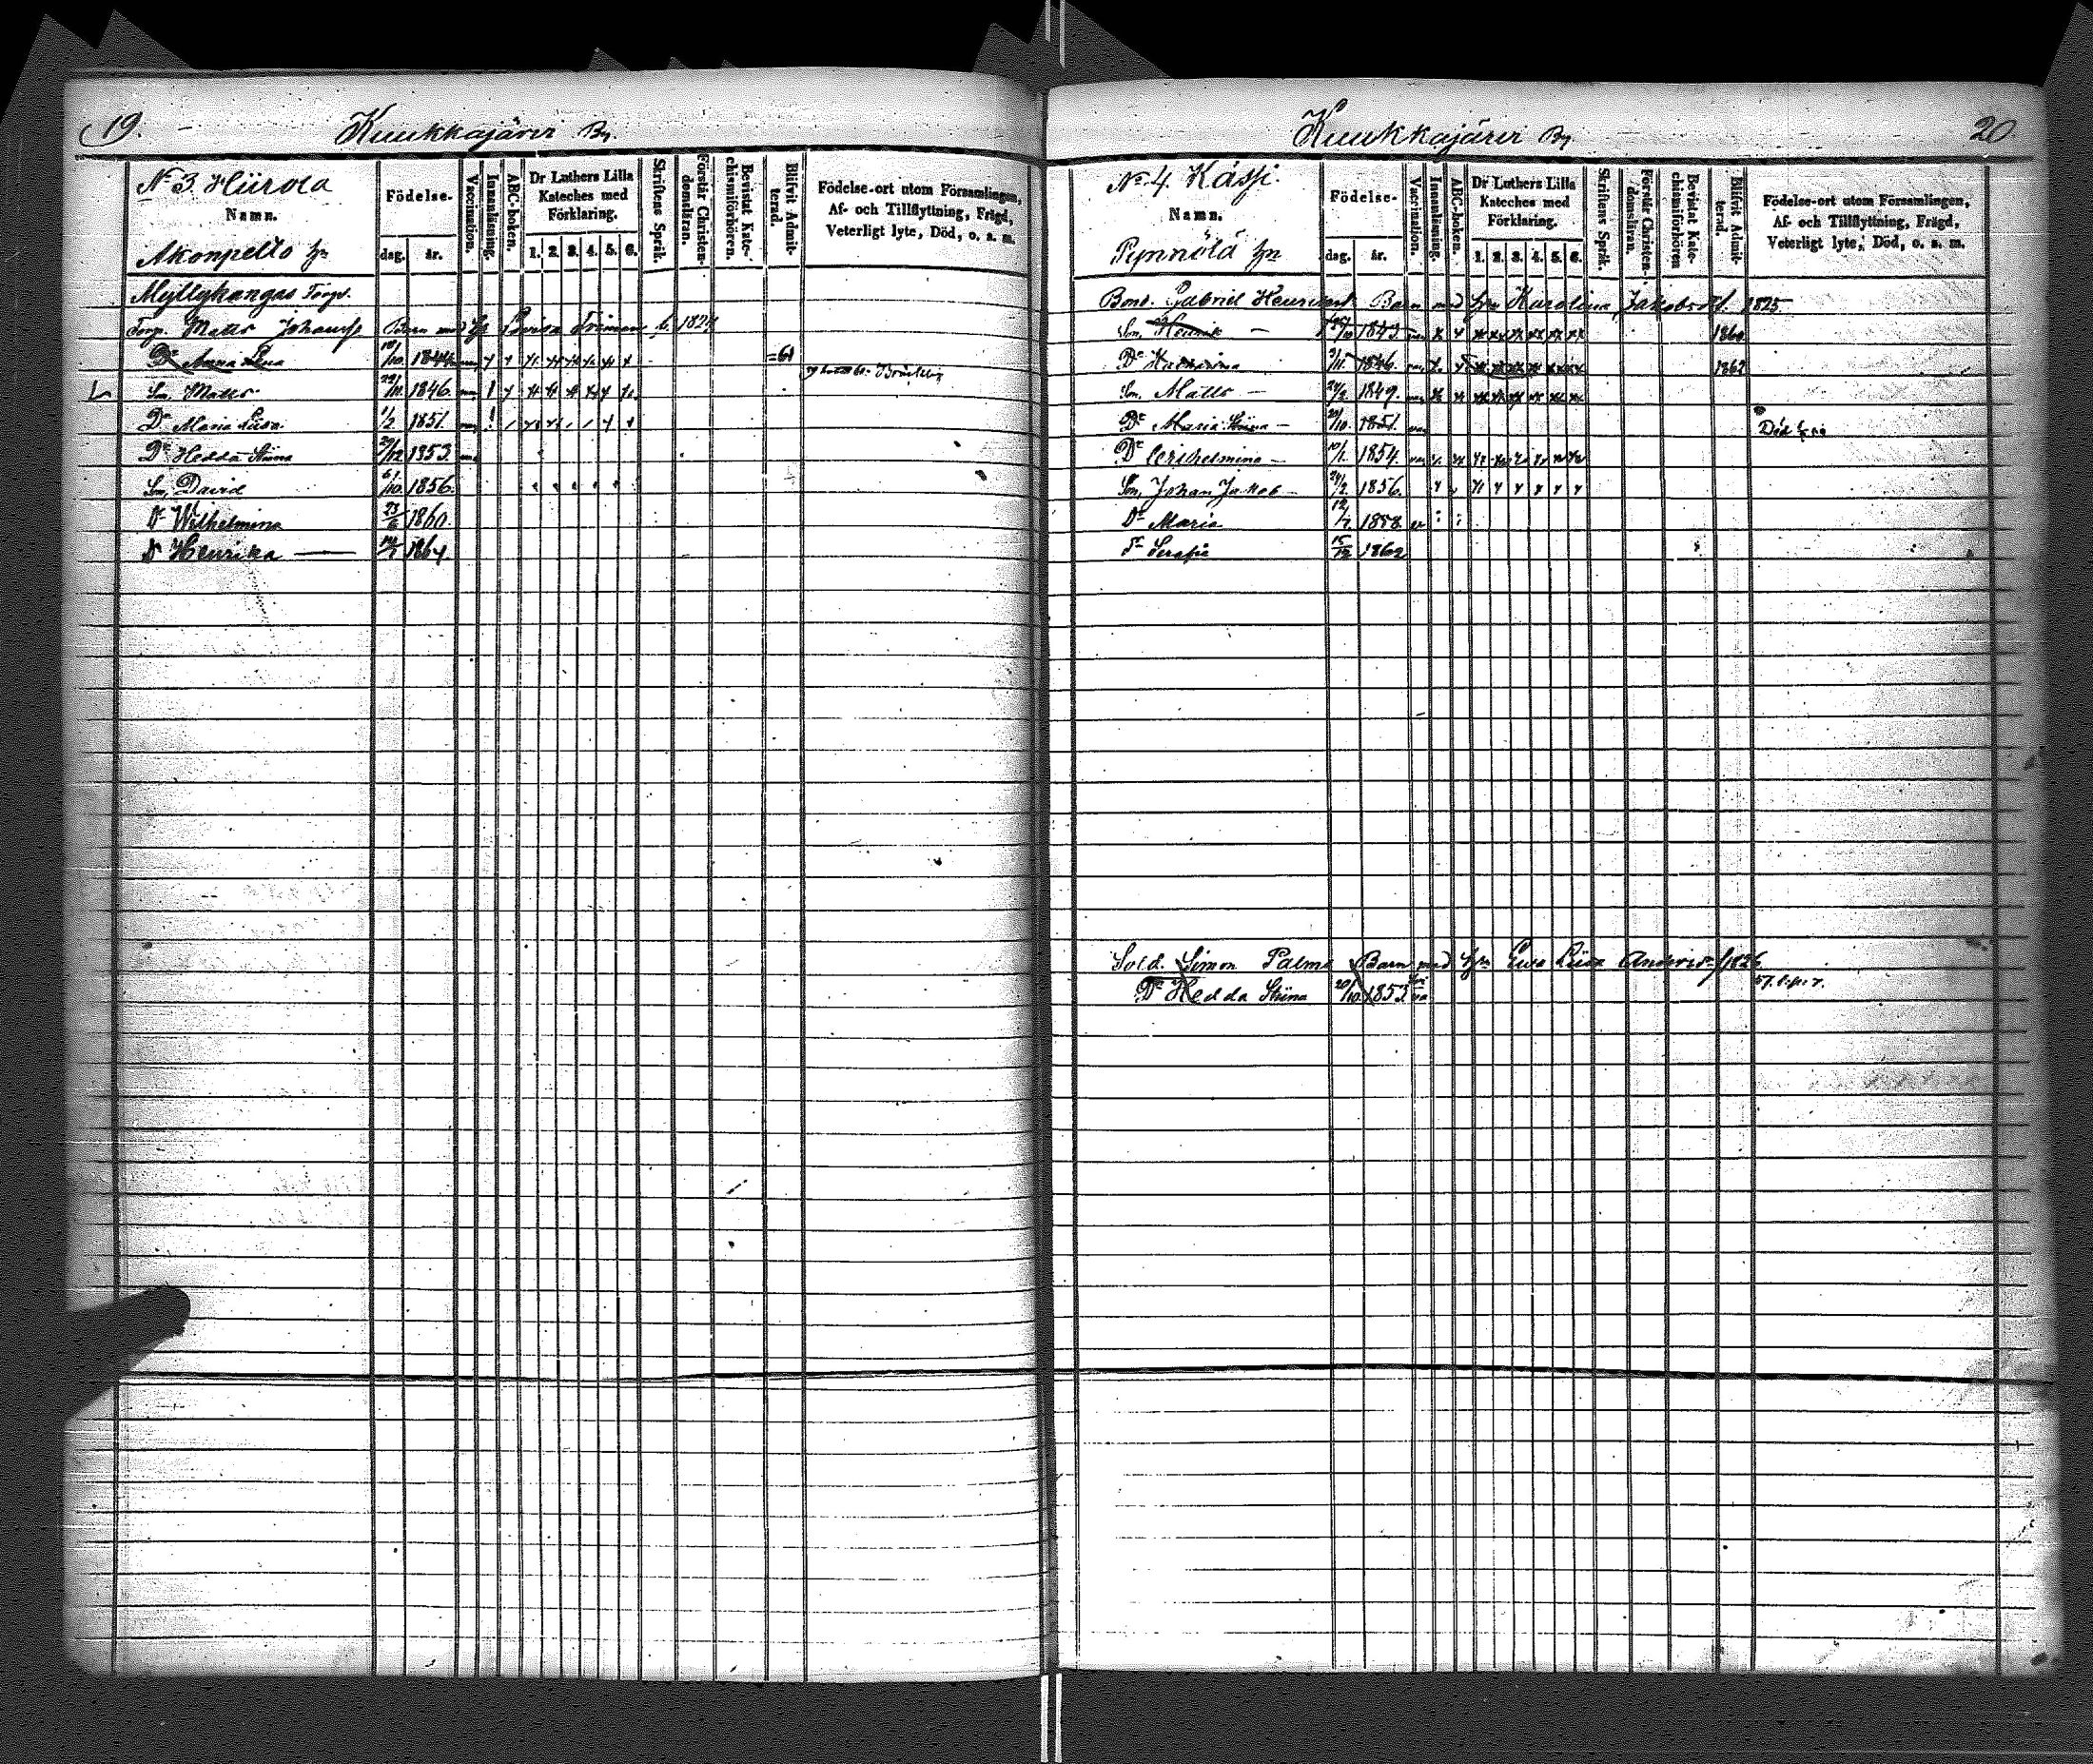 19.
Kuukkajärvi By.
No 3. Hiirola
Namn.
Akonpelto hn
Födelse-
dag. år.
Vaccination.
Innanläsning.
ABC-boken.
Dr Luthers Lilla
Kateches med
Förklaring.
1. 2. 3. 4. 5. 6.
Skriftens Språk.
Förstår Christen-
domsläran.
Bevistat Kate-
chismiförhören.
Blifvit Admit-
terad.
Födelse-ort utom Församlingen,
Af- och Tillflyttning, Frägd,
Veterligt lyte, Död, o. s. m.
Myllykangas Torp.
Torp. Matts Barn med Lovisa 1824
Dr Anna Lena 1844 61
Son, Matts 1846.
Dr Maria Liisa 1/2 1851.
Dr Hedda Stiina 1853
Son, David 6/10 1856.
Dr Wilhelmina 23/6 1860.
Dr Henrika 1864.
Kuukkajärvi By.
20
No 4. Kässi.
Namn.
Pynnölä hn
Födelse-
dag. år.
Vaccination.
Innanläsning.
ABC-boken.
Dr Luthers Lilla
Kateches med
Förklaring.
1. 2. 3. 4. 5. 6.
Skriftens Språk.
Förstår Christen-
domsläran.
Bevistat Kate-
chismiförhören
Blifvit Admit-
terad.
Födelse-ort utom Församlingen,
Af- och Tillflyttning, Frägd,
Veterligt lyte, Död, o. s. m.
Bond. Gabriel Barn med hu Karolina Jakobsdr f. 1825.
Son, Henrik 1843 1860
Dr Katharina 1846. 1862
Son, Matts 1849.
Dr Maria Stiina 1851. Död
Dr 1854.
Son, Johan Jakob 24/2 1856.
Dr Maria 1858
Dr Serafia 15/12 1862
Sold. Simon Palm Barn med hu Eva Liisa f 1826
Dr Hedda Stiina 20/10 1853